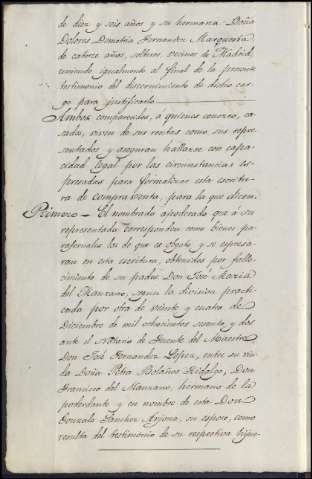 de diez y seis años y su hermana Doña
Dolores Demetria Fernandez Marquesta
de catorce años, solteras vecinas de Madrid,
uniendo igualmente al final de la presente
testimonio del discernimiento de dicho car-
go para justificarlo
Ambos comparecidos, a quienes conozco, ca-
sados, viven de sus rentas como sus repre-
sentados y aseguran hallarse con capa-
cidad legal por las circunstancias es-
presadas para formalizar esta escritu-
ra de compra venta, para la que dicen:
Primero = El nombrado apoderado que á su
representada corresponden como bienes pa-
rafernales los de que es objeto y se espresa-
ran en esta escritura, obtenidos por falle-
cimiento de su padre Don José Maria
del Manzano, segun la division practi-
cada por otra de veinte y cuatro de
Diciembre de mil ochocientos sesenta y dos
ante el Notario de Fuente del Maestre
Don José Fernandez Lopez, entre su viu-
da Doña Rita Bolaños Hidalgo, Don
Francisco del Manzano, hermano de la
poderdante y en nombre de esta Don
Gonzalo Sanchez Arjona, su esposo, como
resulta del testimonio de su respectiva hijue-